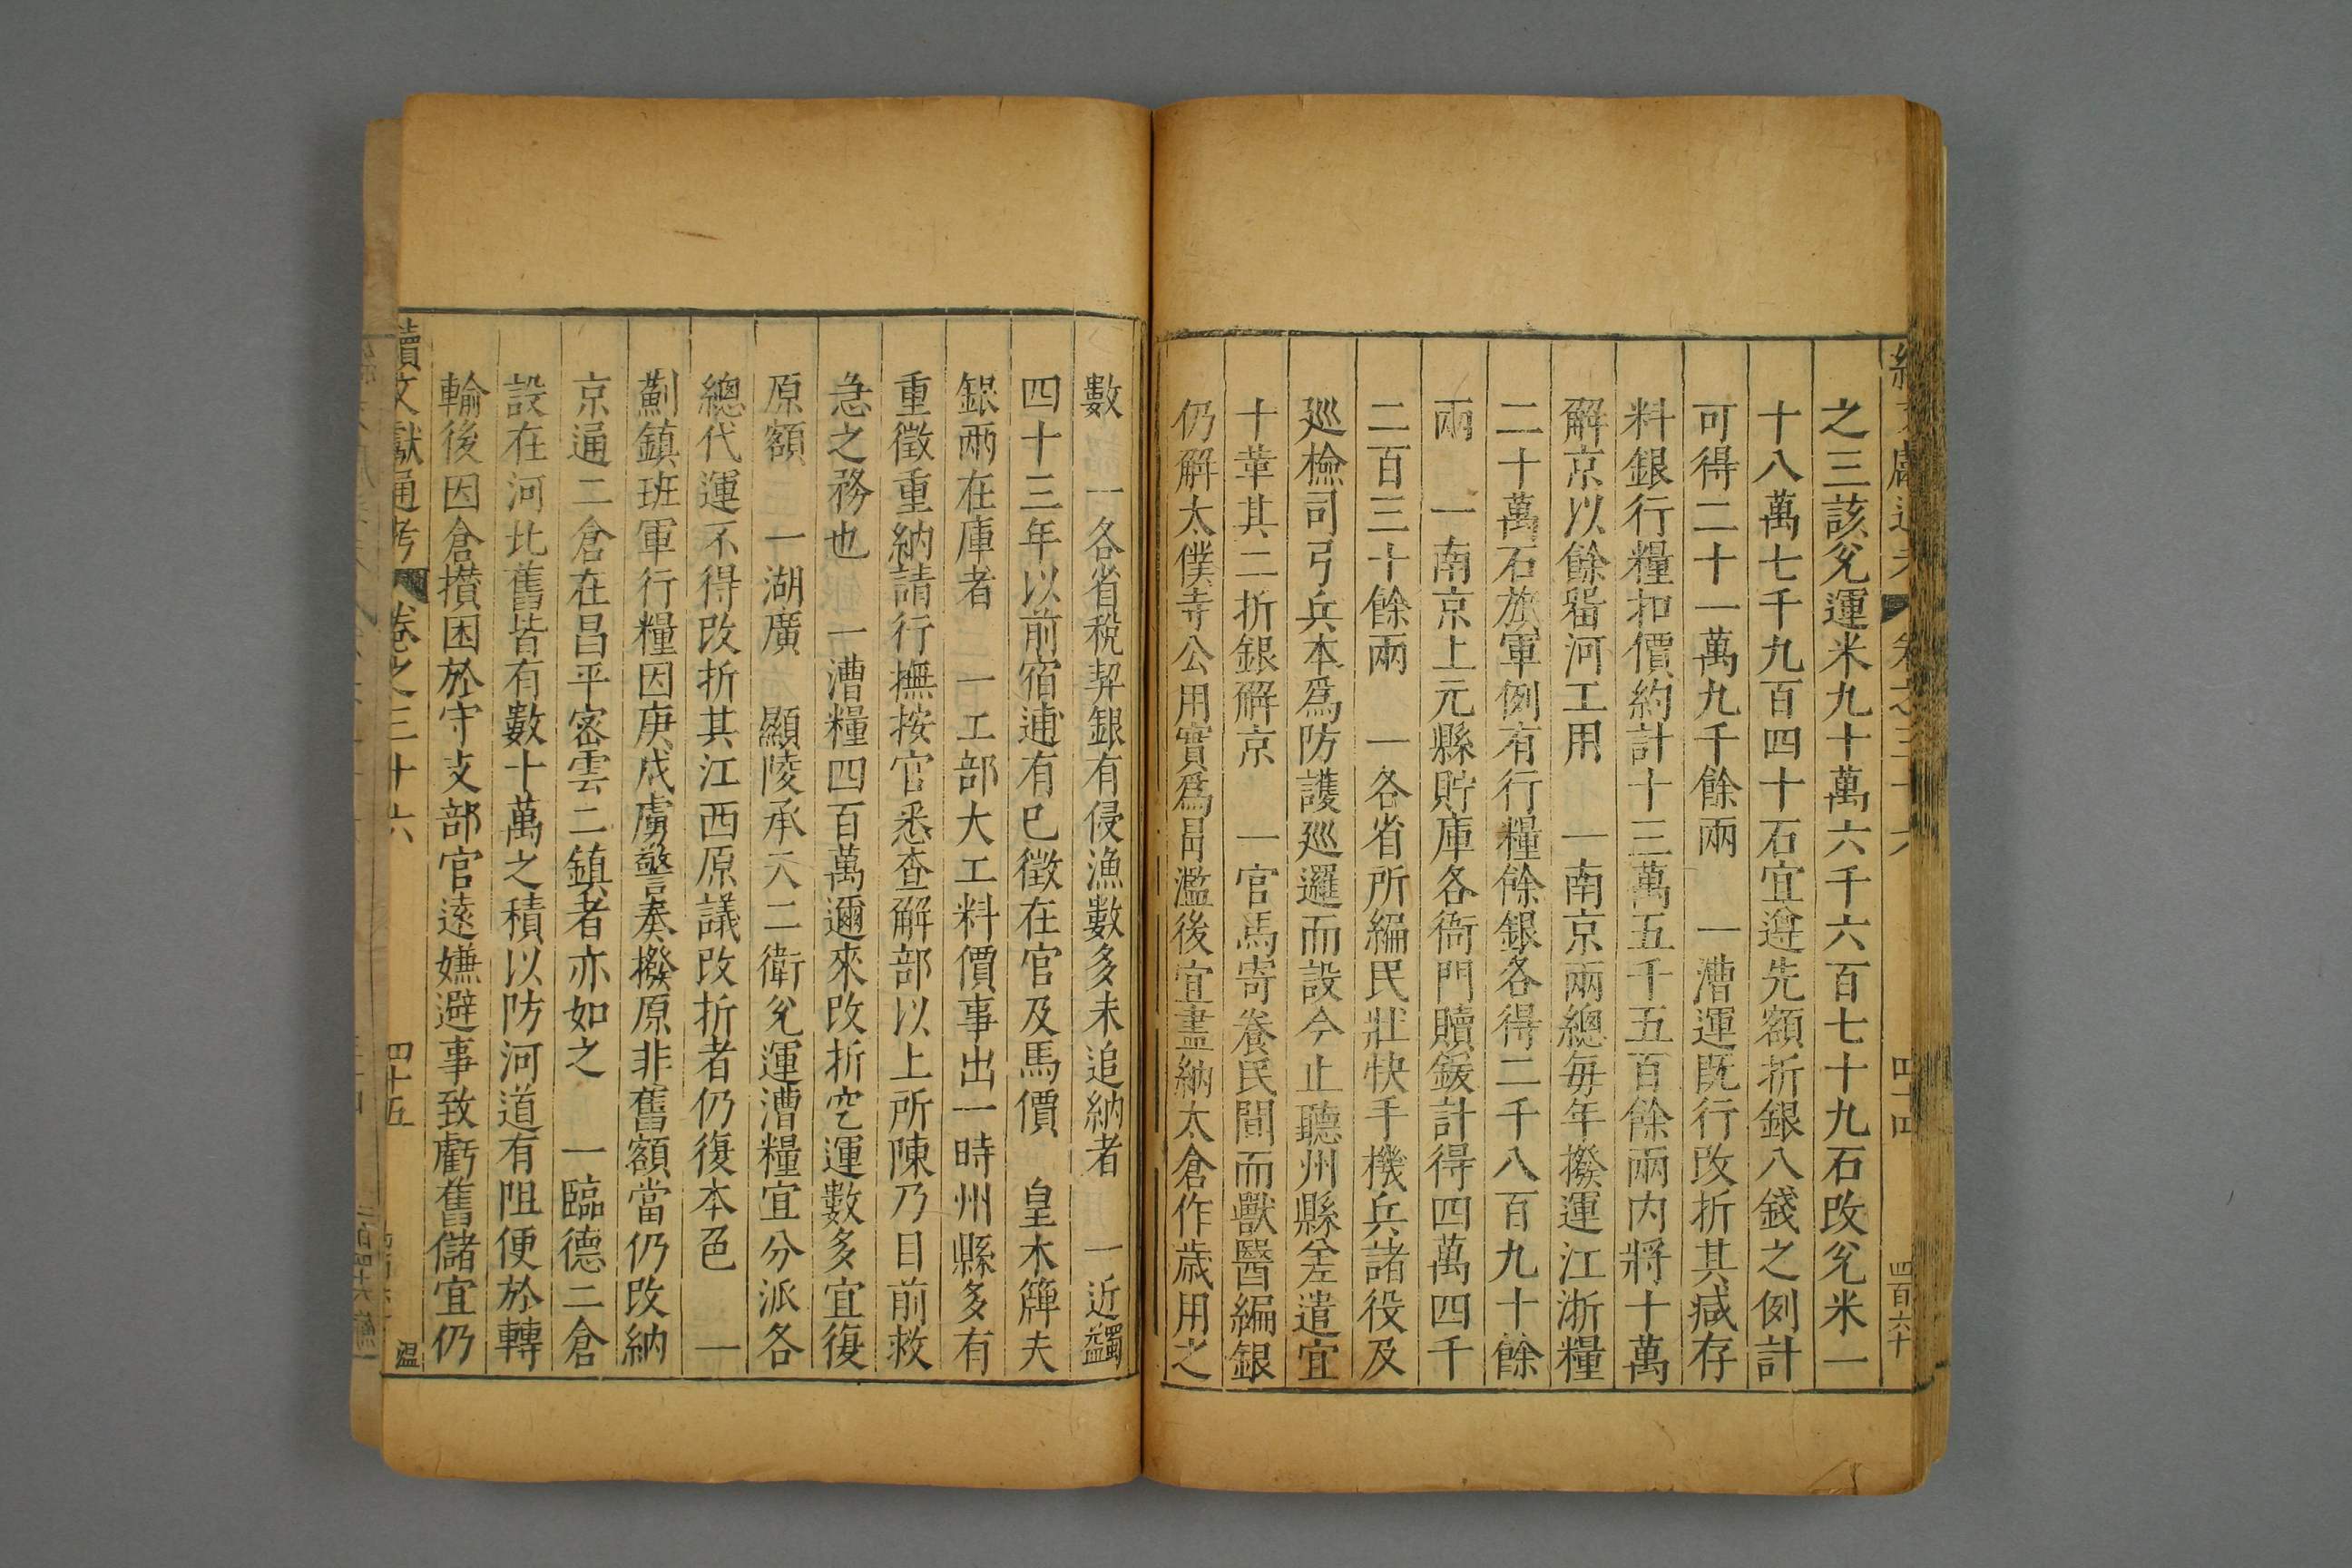 之三該兊運米九十萬六千六百七十九石改兊米一
十八萬七千九百四十石宜遵先額折銀八錢之例計
可得二十一萬九千餘兩　一漕運既行改折其減存
料銀行糧扣價約計十三萬五千五百餘兩内將十萬
解京以餘畱河工用　一南京兩總每年撥運江浙糧
二十萬石旗軍例有行糧餘銀各得二千八百九十餘
兩　一南京上元縣貯庫各衙門贖鍰計得四萬四千
二百三十餘兩　一各省所編民壯快手機兵諸役及
廵檢司弓兵本爲防護廵邏而設今止聽州縣差遣宜
十革其二折銀解京　一官馬寄養民間而獸醫編銀
仍解太僕寺公用實爲冐濫後宜盡納太倉作歲用之
數　一各省稅契銀有侵漁數多未追納者　一近蠲
四十三年以前宿逋有已徵在官及馬價　皇木簰夫
銀兩在庫者　一工部大工料價事出一時州縣多有
重徵重納請行撫按官悉查解部以上所陳乃目前救
急之務也　一漕糧四百萬邇來改折空運數多宜復
原額　一湖廣　顯陵承天二衛兊運漕糧宜分派各
總代運不得改折其江西原議改折者仍復本色　一
薊鎮班軍行糧因庚戌虜警奏撥原非舊額當仍改納
京通二倉在昌平密雲二鎮者亦如之　一臨德二倉
設在河比舊皆有數十萬之積以防河道有阻便於轉
輸後因倉攢困於守支部官遠嫌避事致虧舊儲宜仍
續文獻通考　卷之三十六　四十五　溫